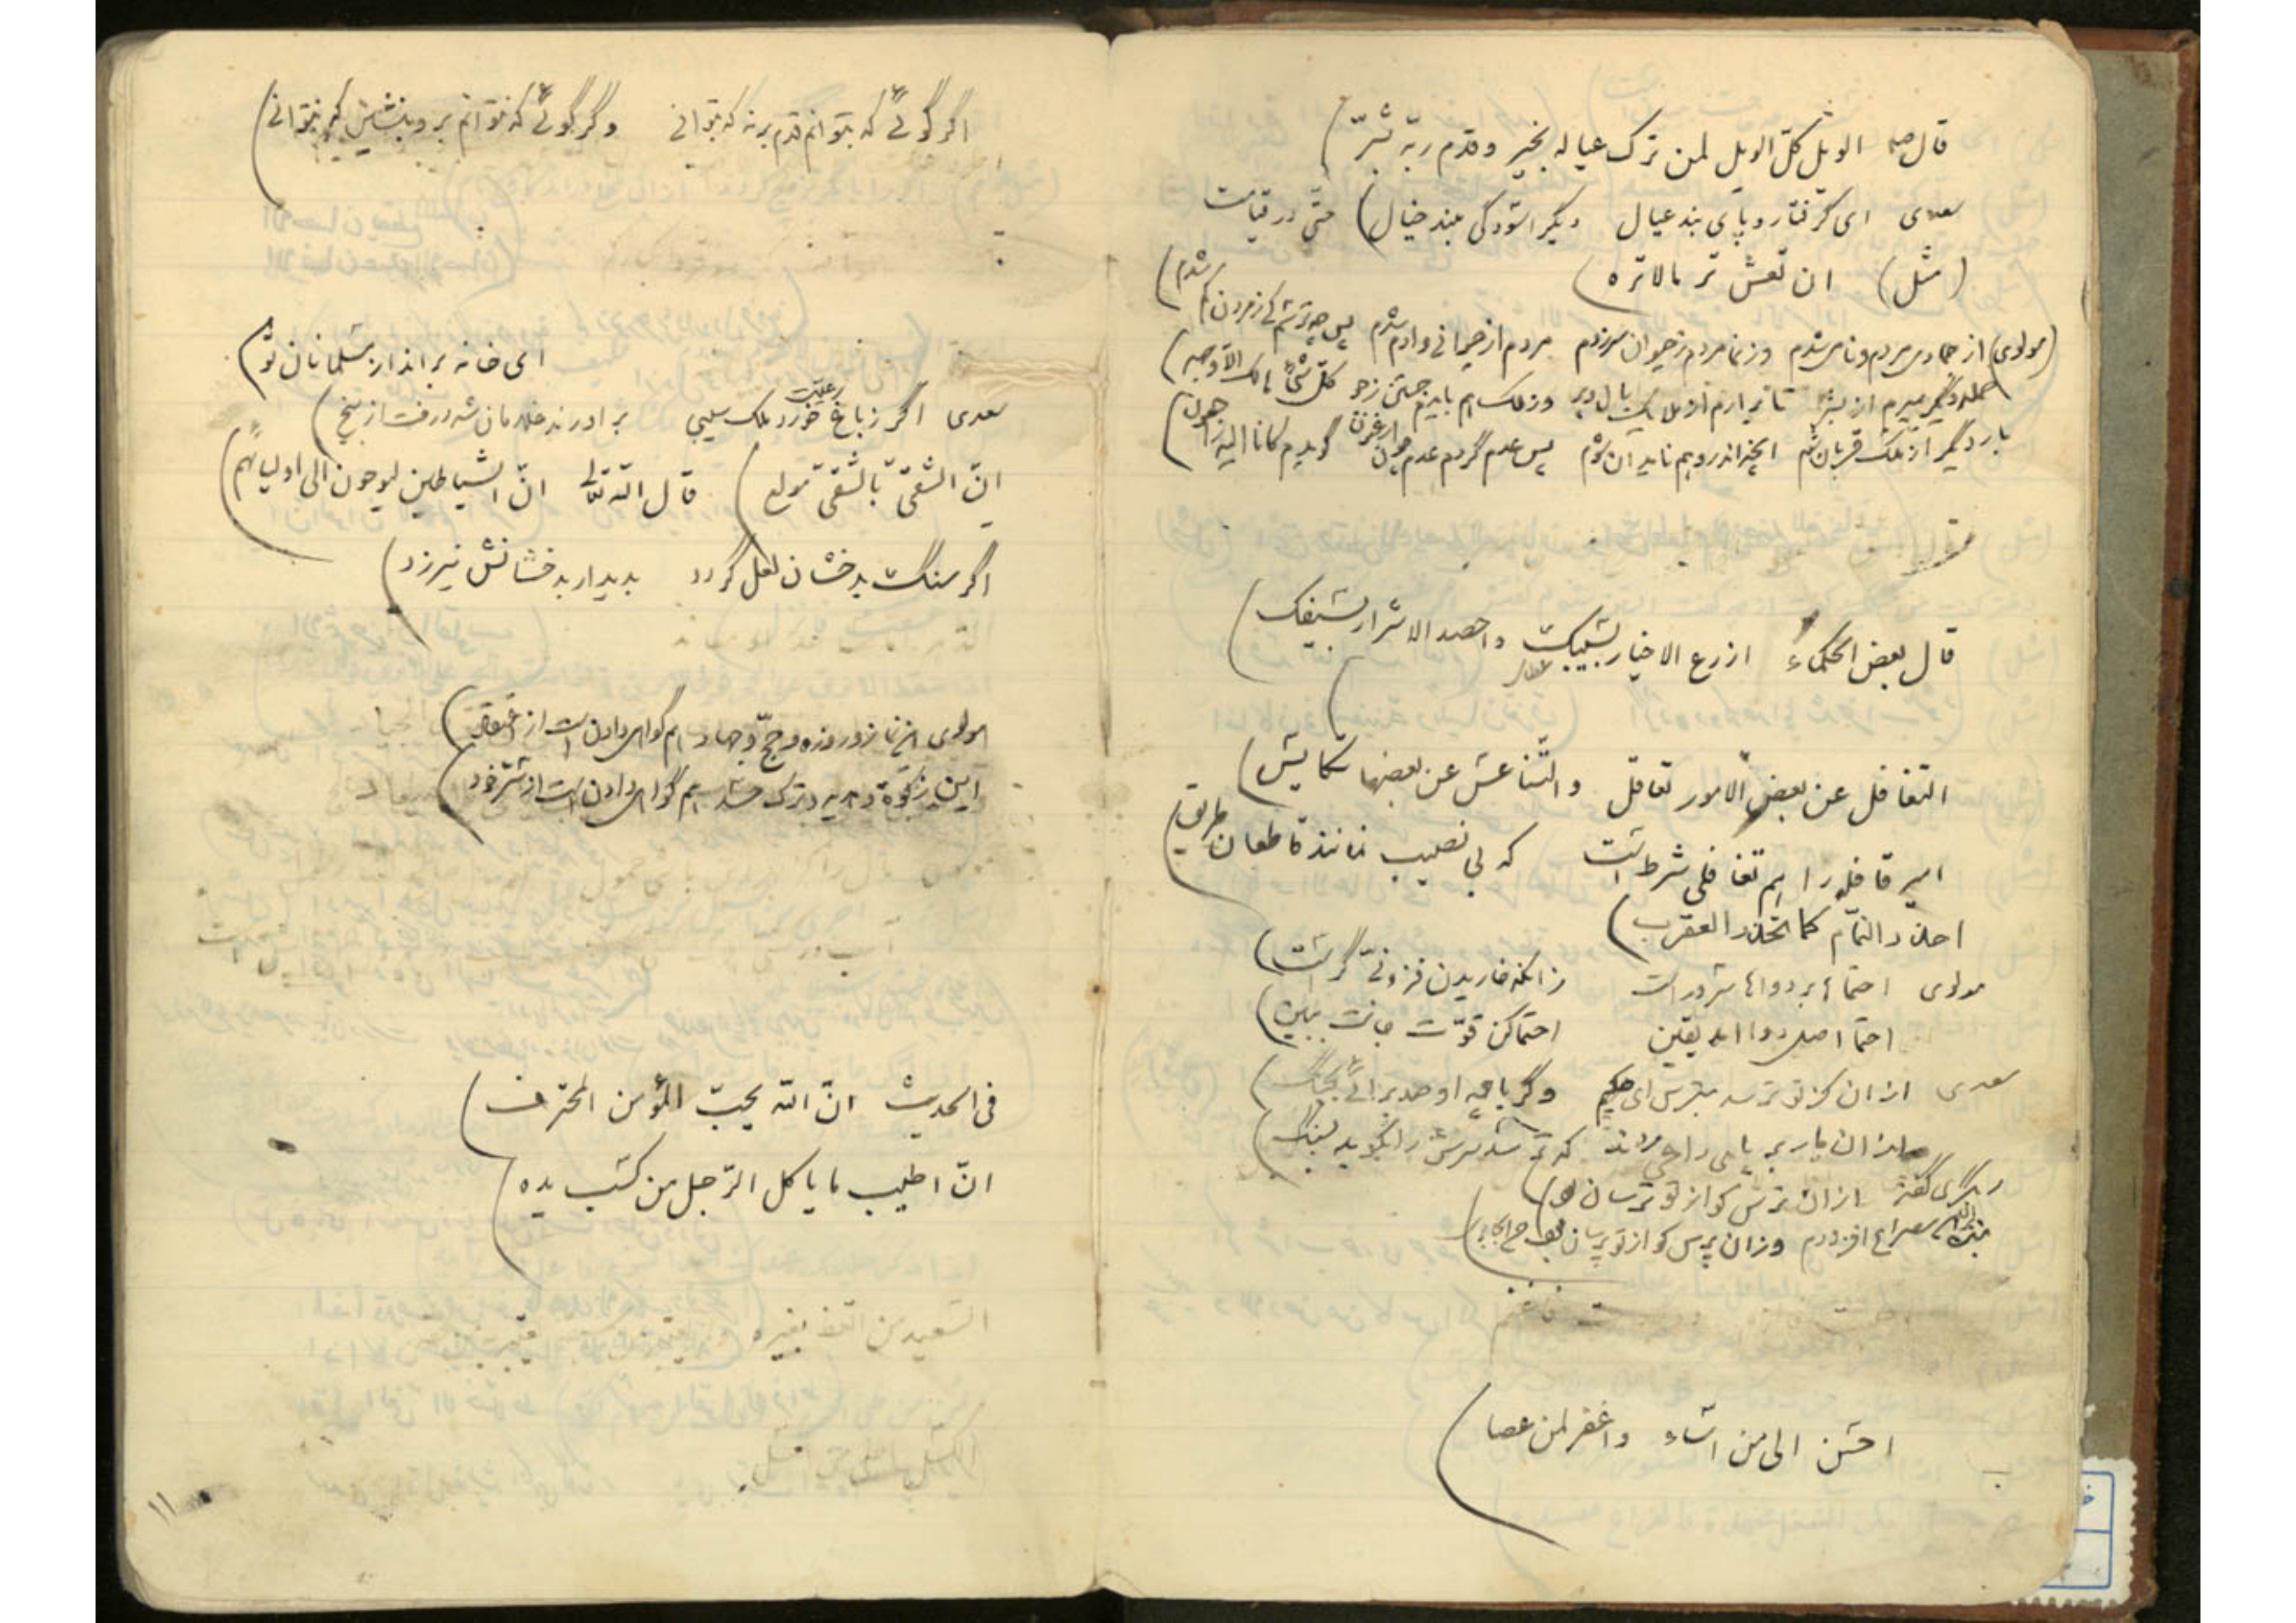 قال ص الویل کلّ الویل لمن ترک عیاله بخیر و قدم ربّه بشرّ
سعدی ای گرفتار و پای بند عیال دیگر آسودگی مبند خیال) حتّی در قیامت
(مثل) ان تعش تر مالا تره
(مولوی) از جمادی مردم و نامی شدم وز نما مردم ز حیوان سر زدم مردم از حیوانی و آدم شدم پس چه ترسم کی ز مردن کم شدم
حمله دیگر بمیرم از بشر تا برآرم از ملایک بال و پر وز ملک هم بایدم جستن ز جو کلّ شئ هالک الّا وجهه
بار دیگر از ملک قربان شوم آنچه اندر وهم ناید آن شوم پس عدم گردم عدم چون ارغنون گویدم کانا الیه راجعون
قال بعض الحکماء ازرع الاخیار بسیبک واحصد الاشرار بسیفک
التغافل عن بعض الامور تعاقل والتناعش عن بعضها تکایس
امیر قافله را هم تغافلی شرطست که بی نصیب نمانند قاطعان طریق
احذر النمّام کما تحذر العقرب
مولوی احتماء بر دواها سرورست زانکه خاریدن فزونیّ گرست
احتما اصل دوا آمد یقین احتما کن قوّت جانت ببین
سعدی از آن کز تو ترسد بترس ای حکیم وگر با چو او صد برآئی بجنگ
از آن مار بر پای راعی زند که ترسد سرش را بکوبد بسنگ
دیگری گفته از آن ترس کو از تو ترسان بود
مصراع افزودم وزان پرس کو از تو پرسان بود
احسن الی من اساء واغفر لمن عصا
اگر گوئی که بتوانم قدم در نه که بتوانی وگر گوئی که نتوانم برو بنشین که نتوانی
ای خانه برانداز مسلمانان تو
سعدی اگر ز باغ رعیّت خورد ملک سیبی برآورند غلامان شه درخت از بیخ
انّ الشقیّ بالشقیّ مولع) قال الله تعالی انّ الشیاطین لیوحون الی اولیائهم
اگر سنگ بدخشان لعل گردد بدیدار بدخشانش نیرزد
مولوی این نماز و روزه و حجّ و جهاد هم گواهی دادن است از اعتقاد
این زکوة و هدیه و ترک حسد هم گواهی دادن است از سرّ خود
فی الحدیث انّ الله یحبّ المؤمن المحترف
انّ اطیب ما یاکل الرّجل من کسب یده
السّعید من اتّعظ بغیره
۱۱